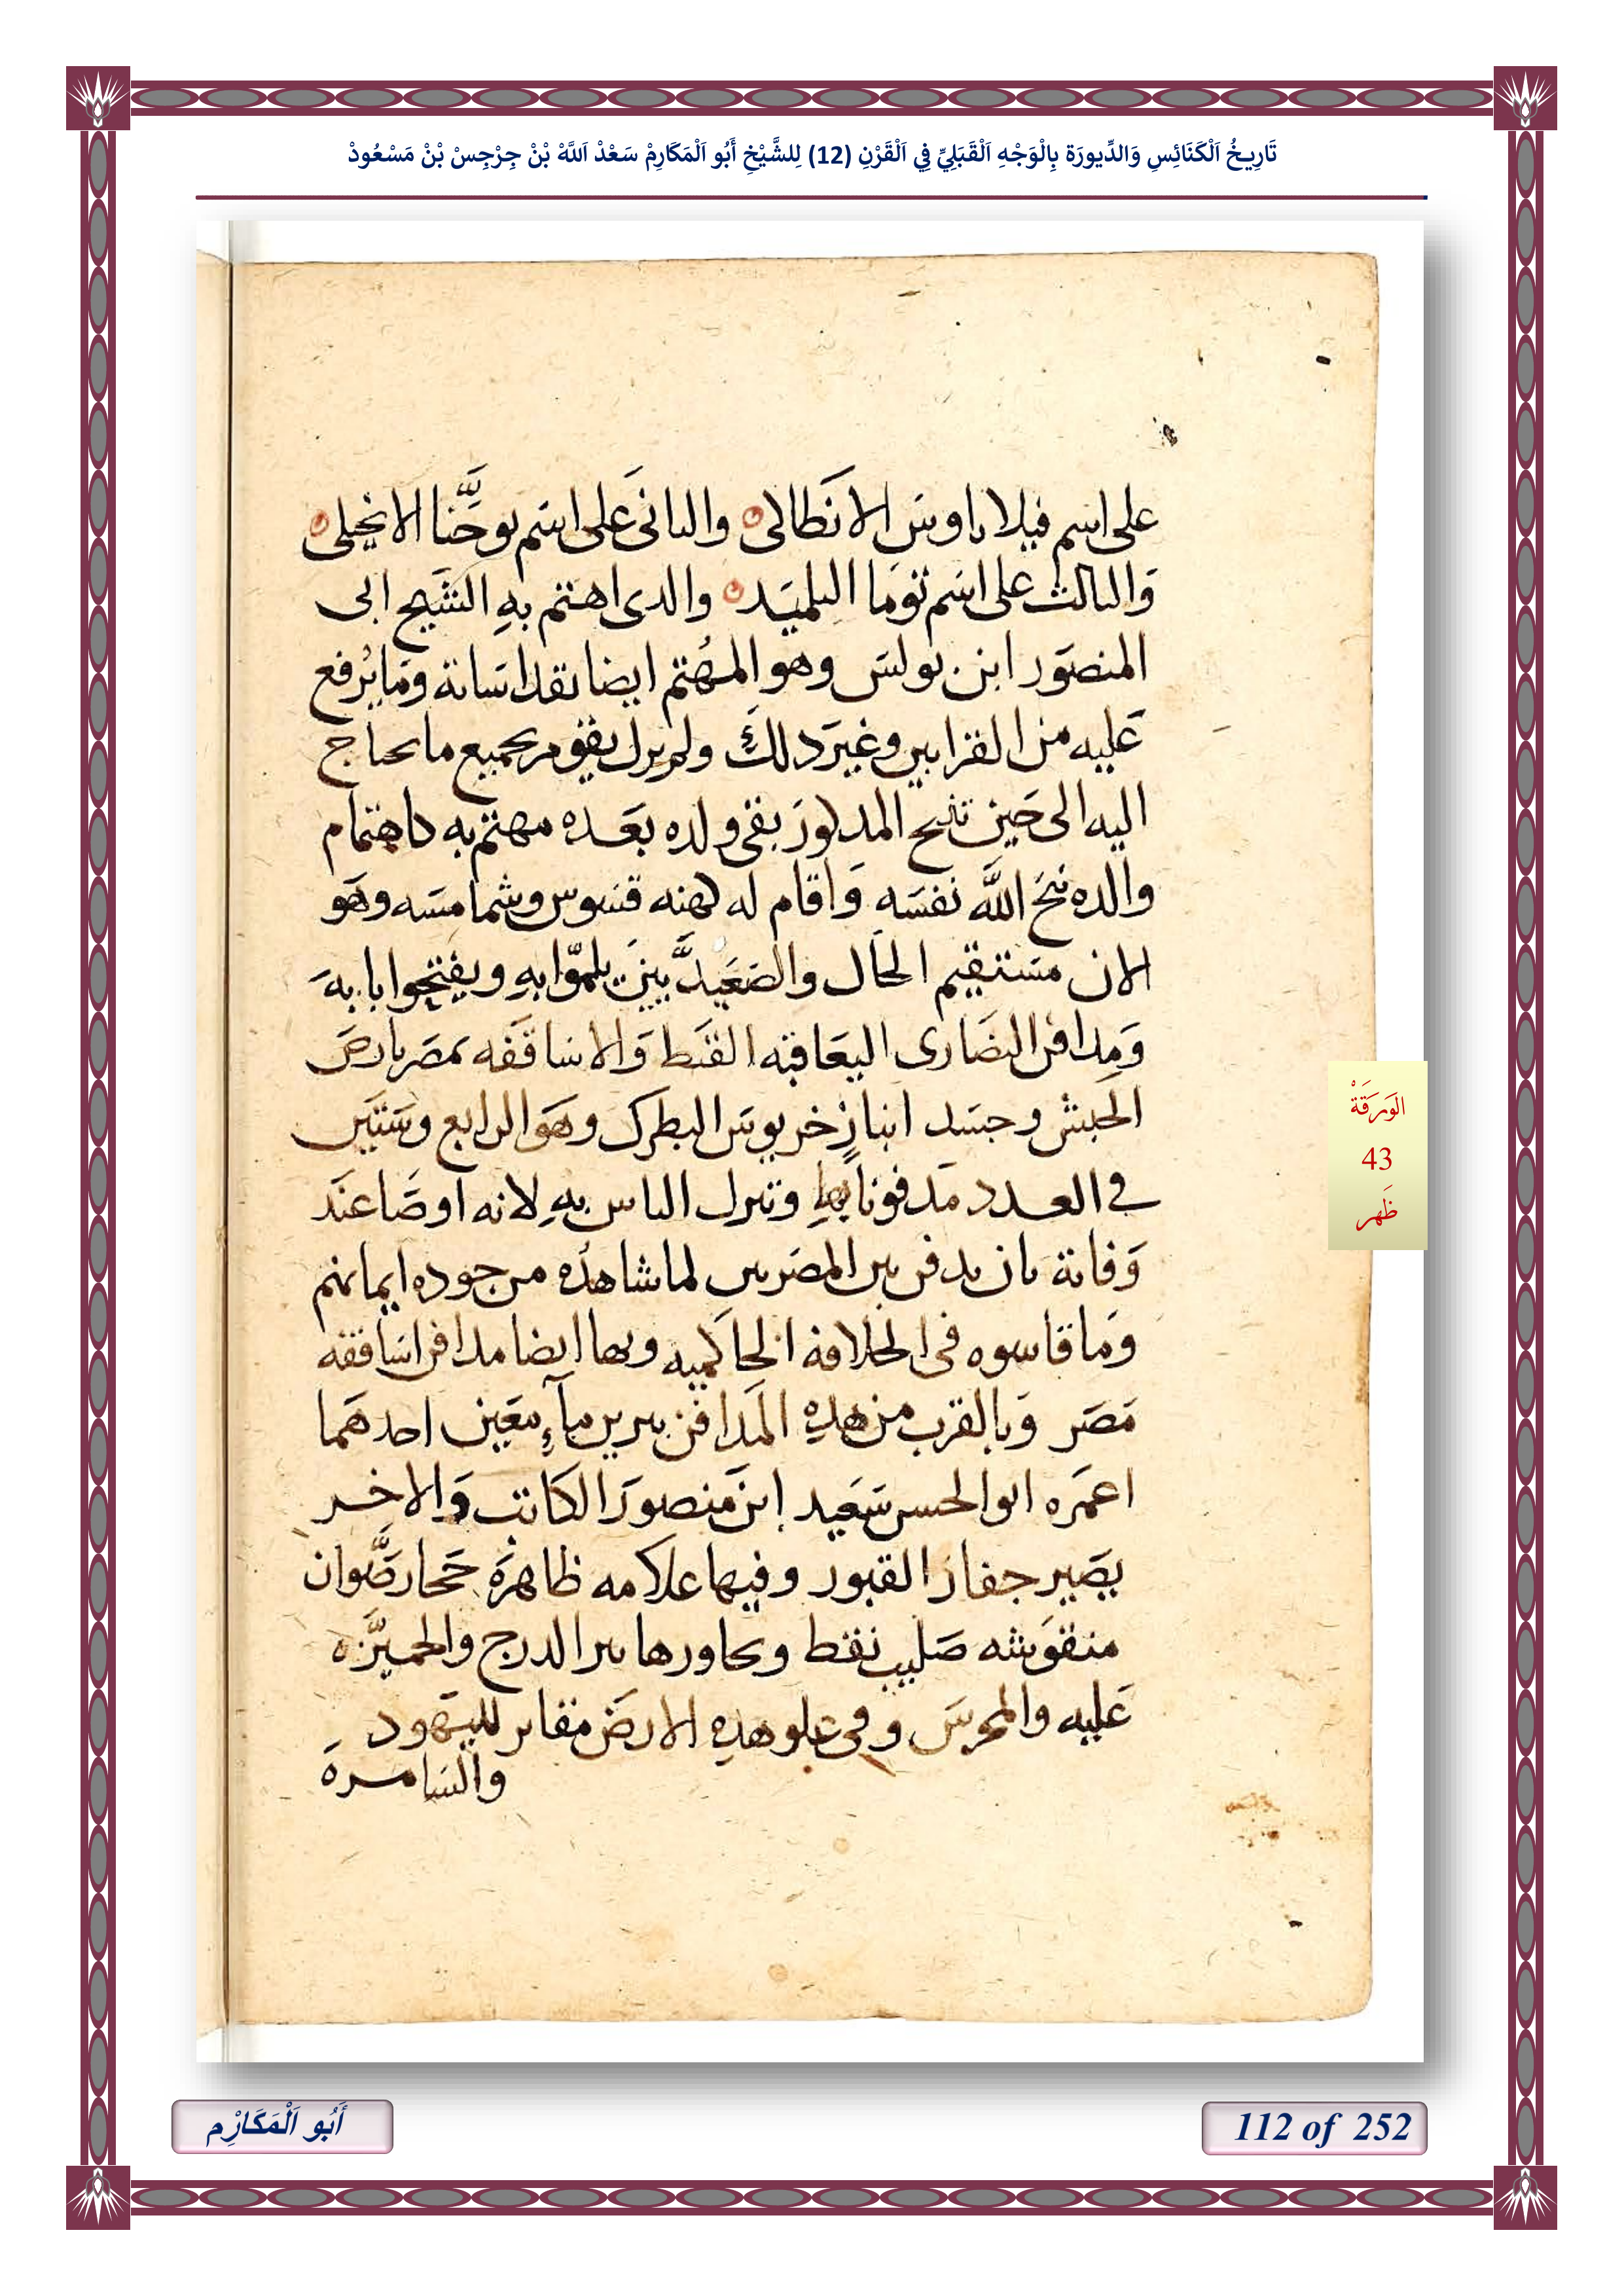 تَارِيخُ اَلْكَنَائِسِ وَالدِّيورَة بِالْوَجْهِ اَلْقَبَلِيِّ فِي اَلْقَرْنِ (12) لِلشَّيْخِ أَبُو اَلْمَكَارِمْ سَعْدْ اَللَّهْ بْنْ جِرْجِسْ بْنْ مَسْعُودْ
على اسم فيلاتاوس الانطاكى والثانى على اسم يوحَّنا الانجيلى
والثالث على اسم توما التلميد والدى اهتم به الشيخ ابى
المنصور ابن بولس وهو المهتم ايضا بقداساته وما يُرفع
عليه من القرابين وغير دلك ولم يزل يقوم بجميع ما يحتاج
اليه الى حين تنيح المدكور بقى ولده بعده مهتم به كاهتمام
والده نيح اللَّه نفسه واقام له كهنه قسوس وشمامسه وهو
الان مستقيم الحال والصعيديَّين يلمّوا به ويفتحوا بابه
ومدافن النصارى اليعاقبه القبط والاساقفه بمصر بارض
الحبش وجسد انبا زخريوس البطرك وهو الرابع وستين
فى العدد مدفونا بها وتبرك الناس به لانه اوصا عند
وفاته بان يدفن بين المصريين لما شاهده من جوده ايمانهم
وما قاسوه فى الخلافه الحاكميه وبها ايضا مدافن اساقفه
مصر وبالقرب من هده المدافن بيرين ماءٍ معين احدهما
اعمره ابو الحسن سعيد ابن منصور الكاتب والاخر
بصير حفار القبور وفيها علامه ظاهره حجار صَّوان
منقوشه صليب نقط ويجاورها بير الدرج والجميّزه
عليه والمحرس وفى علو هده الارض مقابر لليهود
والسامرة
الوَرَقَةْ
43
ظَهر
أَبُو اَلْمَكَارِْم
112 of 252